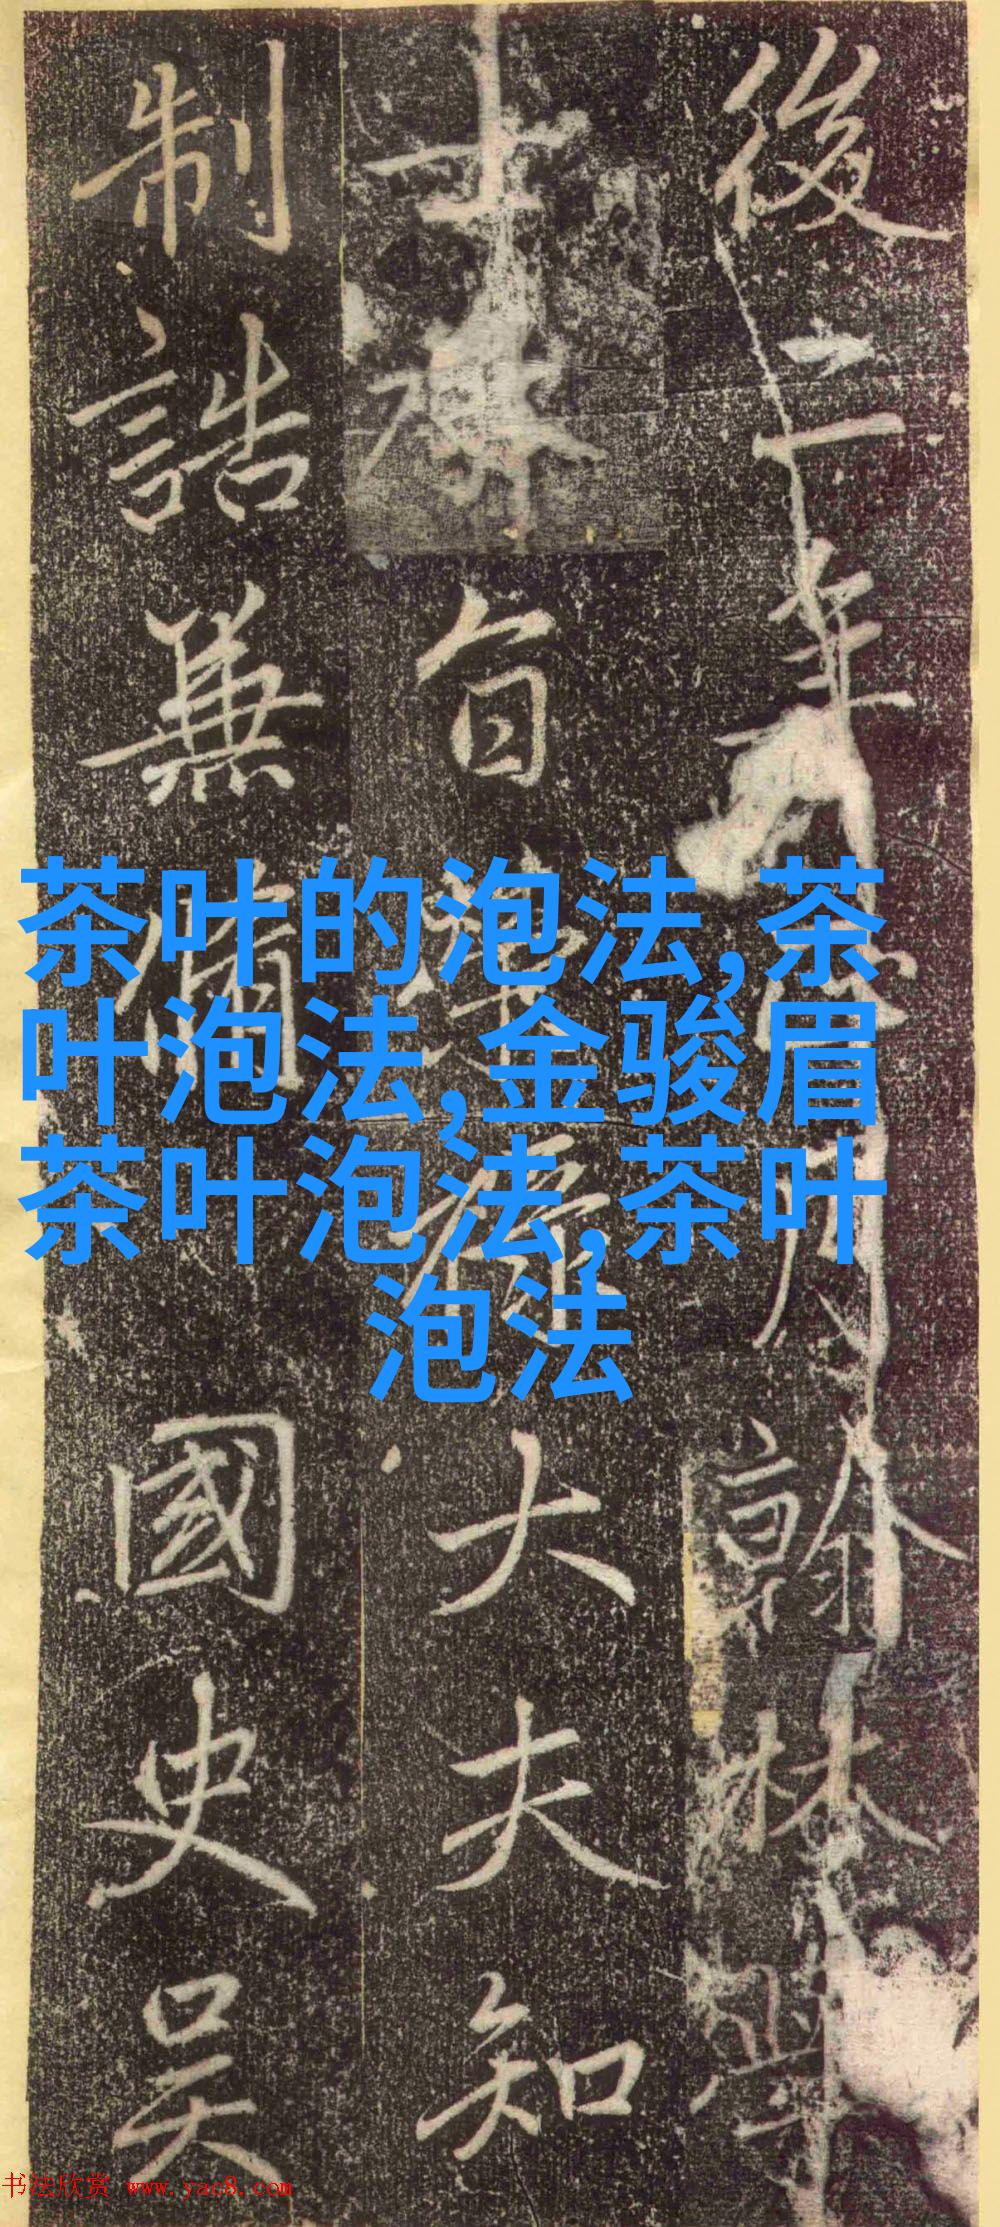 後二年月翰林學
士旨大夫知
制誥兼脩國史吴
茶叶的泡法,茶
叶泡法,金骏眉
茶叶泡法,茶叶
泡法
书法欣赏 www.yac8.com